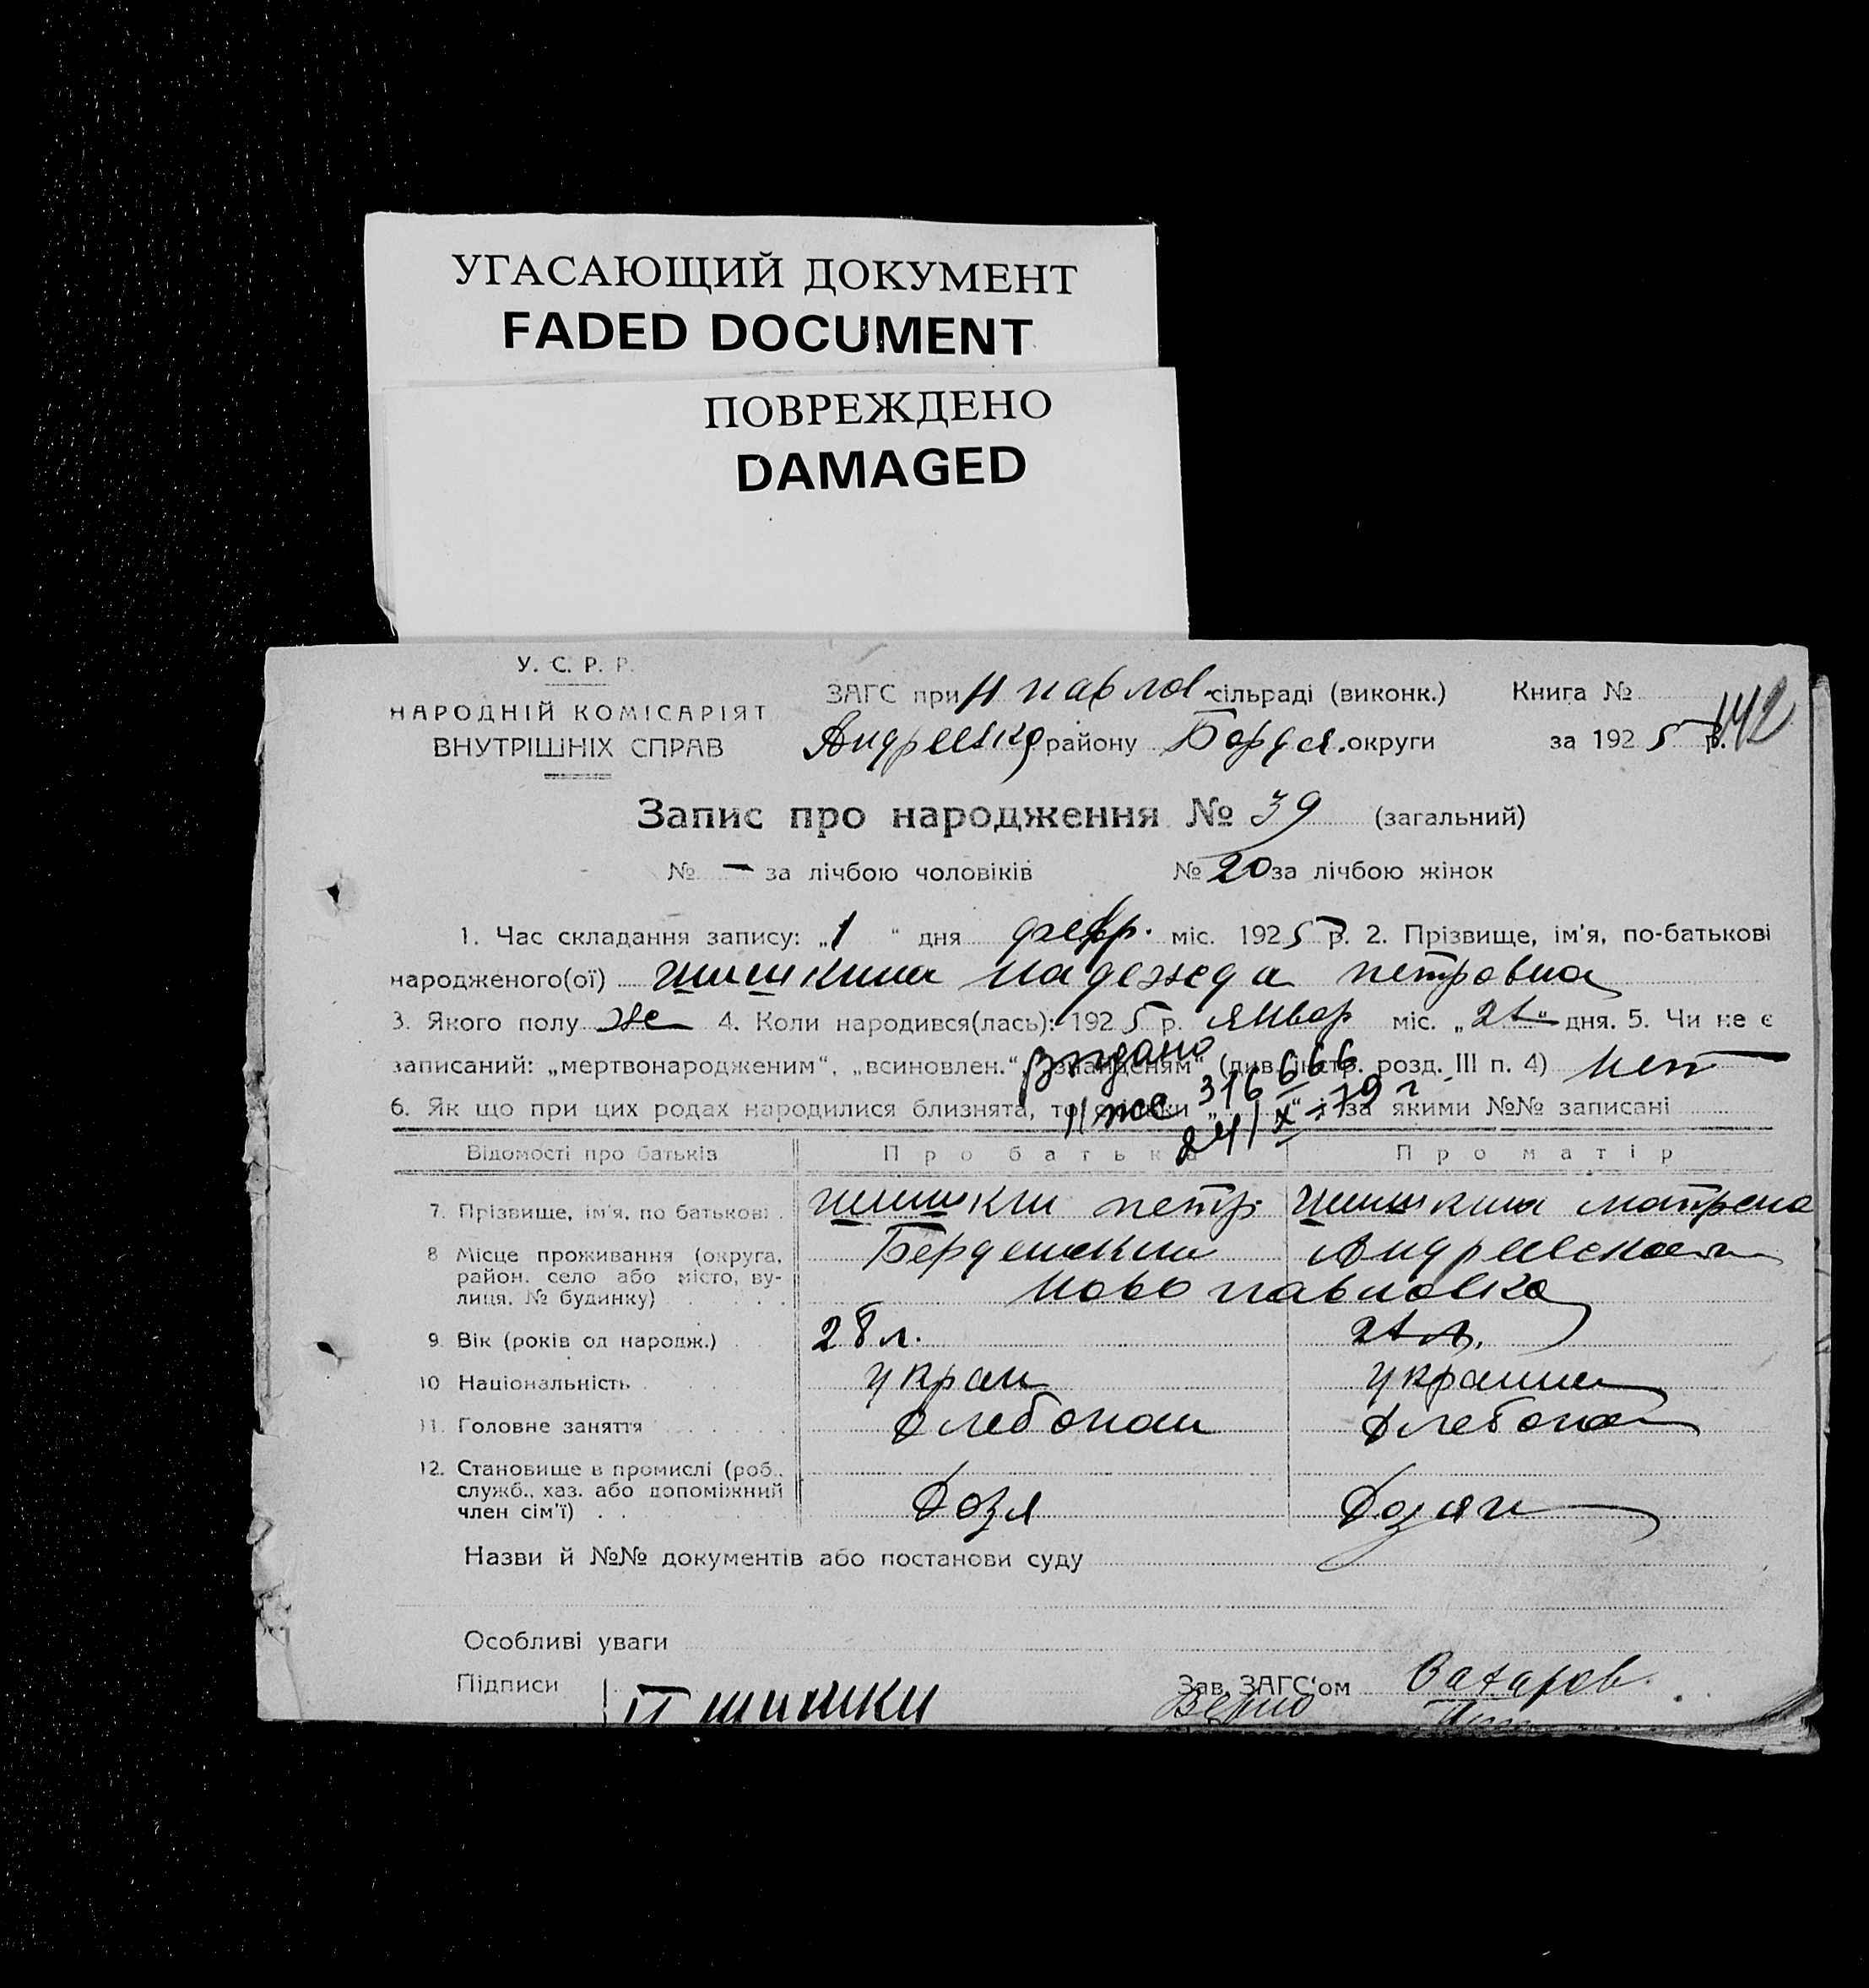 УГАСАЮЩИЙ ДОКУМЕНТ
FADED DOCUMENT
ПОВРЕЖДЕНО
DAMAGED
У. С. Р. Р.
НАРОДНІЙ КОМІСАРІЯТ
ВНУТРІШНІХ СПРАВ
ЗАГС при Н павлов. сільраді (виконк.) Книга №
району округи за 1925 р. 142
Запис про народження № 39 (загальний)
№ — за лічбою чоловіків № 20 за лічбою жінок
1. Час складання запису: „1 “ дня февр. міс. 1925 р. 2. Прізвище, ім'я, по-батькові
народженого(ої) Шишкина Надежда Петровна
3. Якого полу же 4. Коли народився(лась): 1925 р. январ міс. „ “ дня. 5. Чи не є
записаний: „мертвонародженим“, „всиновлен.“, „знайденям“ (див. інстр. розд. III п. 4) нет
Видано
316666
6. Як що при цих родах народилися близнята, то скільки „ “ і за якими №№ записані
24/X-79 г
Відомості про батьків Про батька Про матір
7. Прізвище, ім'я, по батькові . Шишкин Петр Шишкина Матрена
8 Місце проживання (округа, район, село або місто, ву-
лиця, № будинку) . . .
Ново павловка
9. Вік (років од народж.) . 28 л.
10 Національність . . . . украи украин
11. Головне заняття . . . . хлебопаш хлебопа
12. Становище в промислі (роб.,
служб., хаз. або допоміжний
член сім'ї) . . хозя хозяи
Назви й №№ документів або постанови суду
Особливі уваги
Підписи П Шишки Зав. ЗАГС'ом Захаров.
Верно